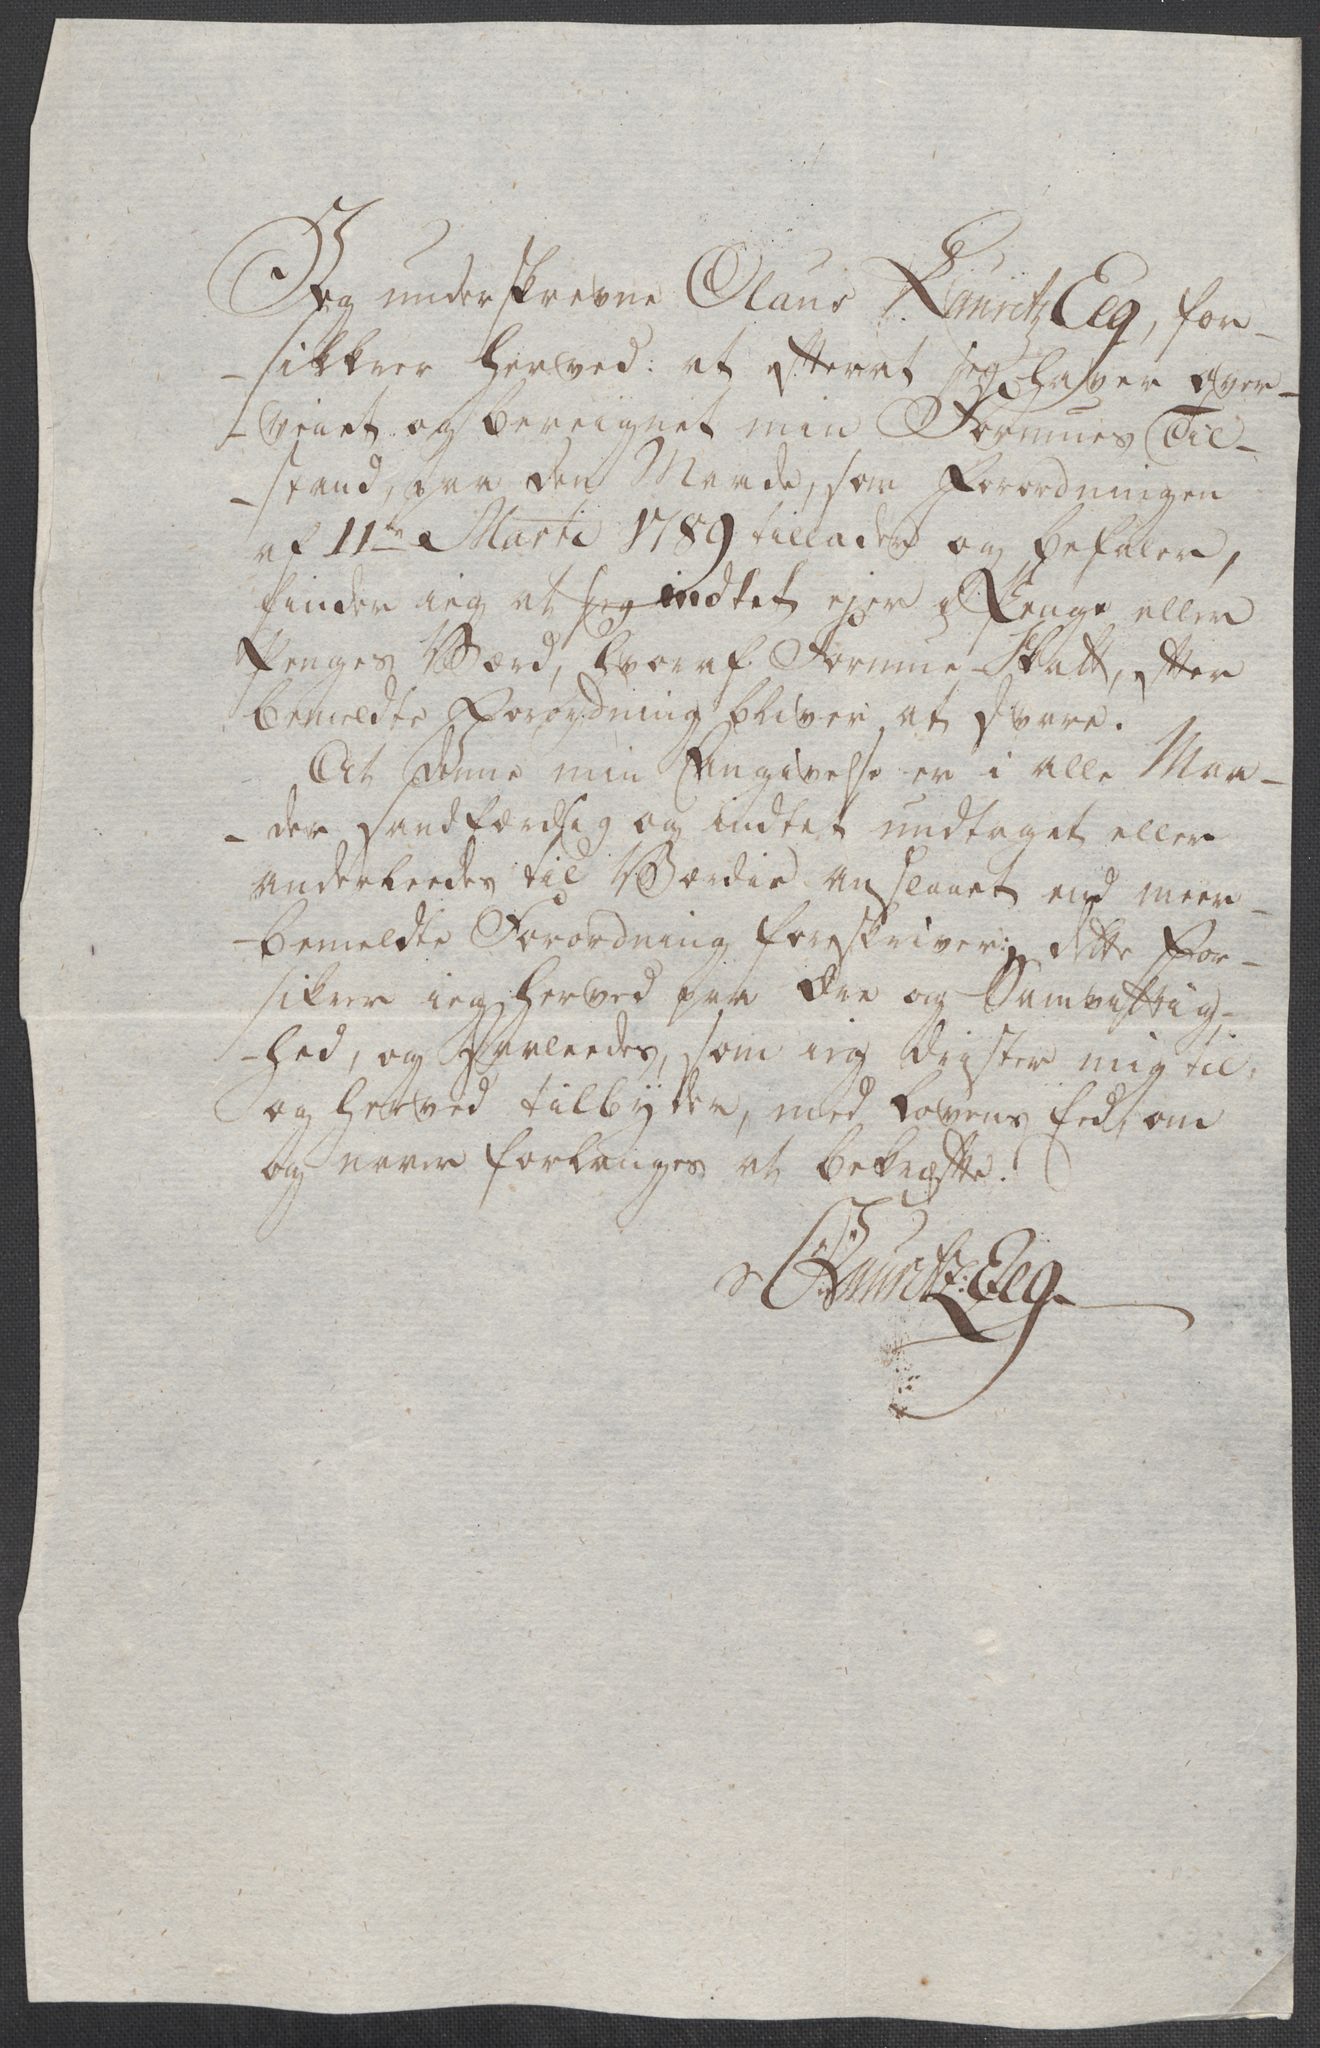 Jeg underskrevne Olaus Lauritz Eeg, for-
-sikkrer herved: at efterat jeg haver over-
-veiet og bereignet min Formues Til-
-stand, paa den Maade, som Forordningen
af 11te Martii 1789 tillader og befaler,
finder ieg at jeg indtet ejer i Penge eller
Penges Værd, hvoraf Formue-Skatt, efter
bemeldte Forordning bliver at svare.
At denne min Angivelse er i alle Maa-
-der sandfærdig og indtet undtaget eller
anderleedes til Værdie anslaaet end meer-
-bemeldte Forordning foreskriver; dette for-
sikrer ieg herved paa Ære og Samvittig-
-hed, og saaleedes, som ieg drister mig til,
og herved tilbyder, med Lovens Eed, om
og naar forlanges at bekræfte.
Lauritz: Eeg